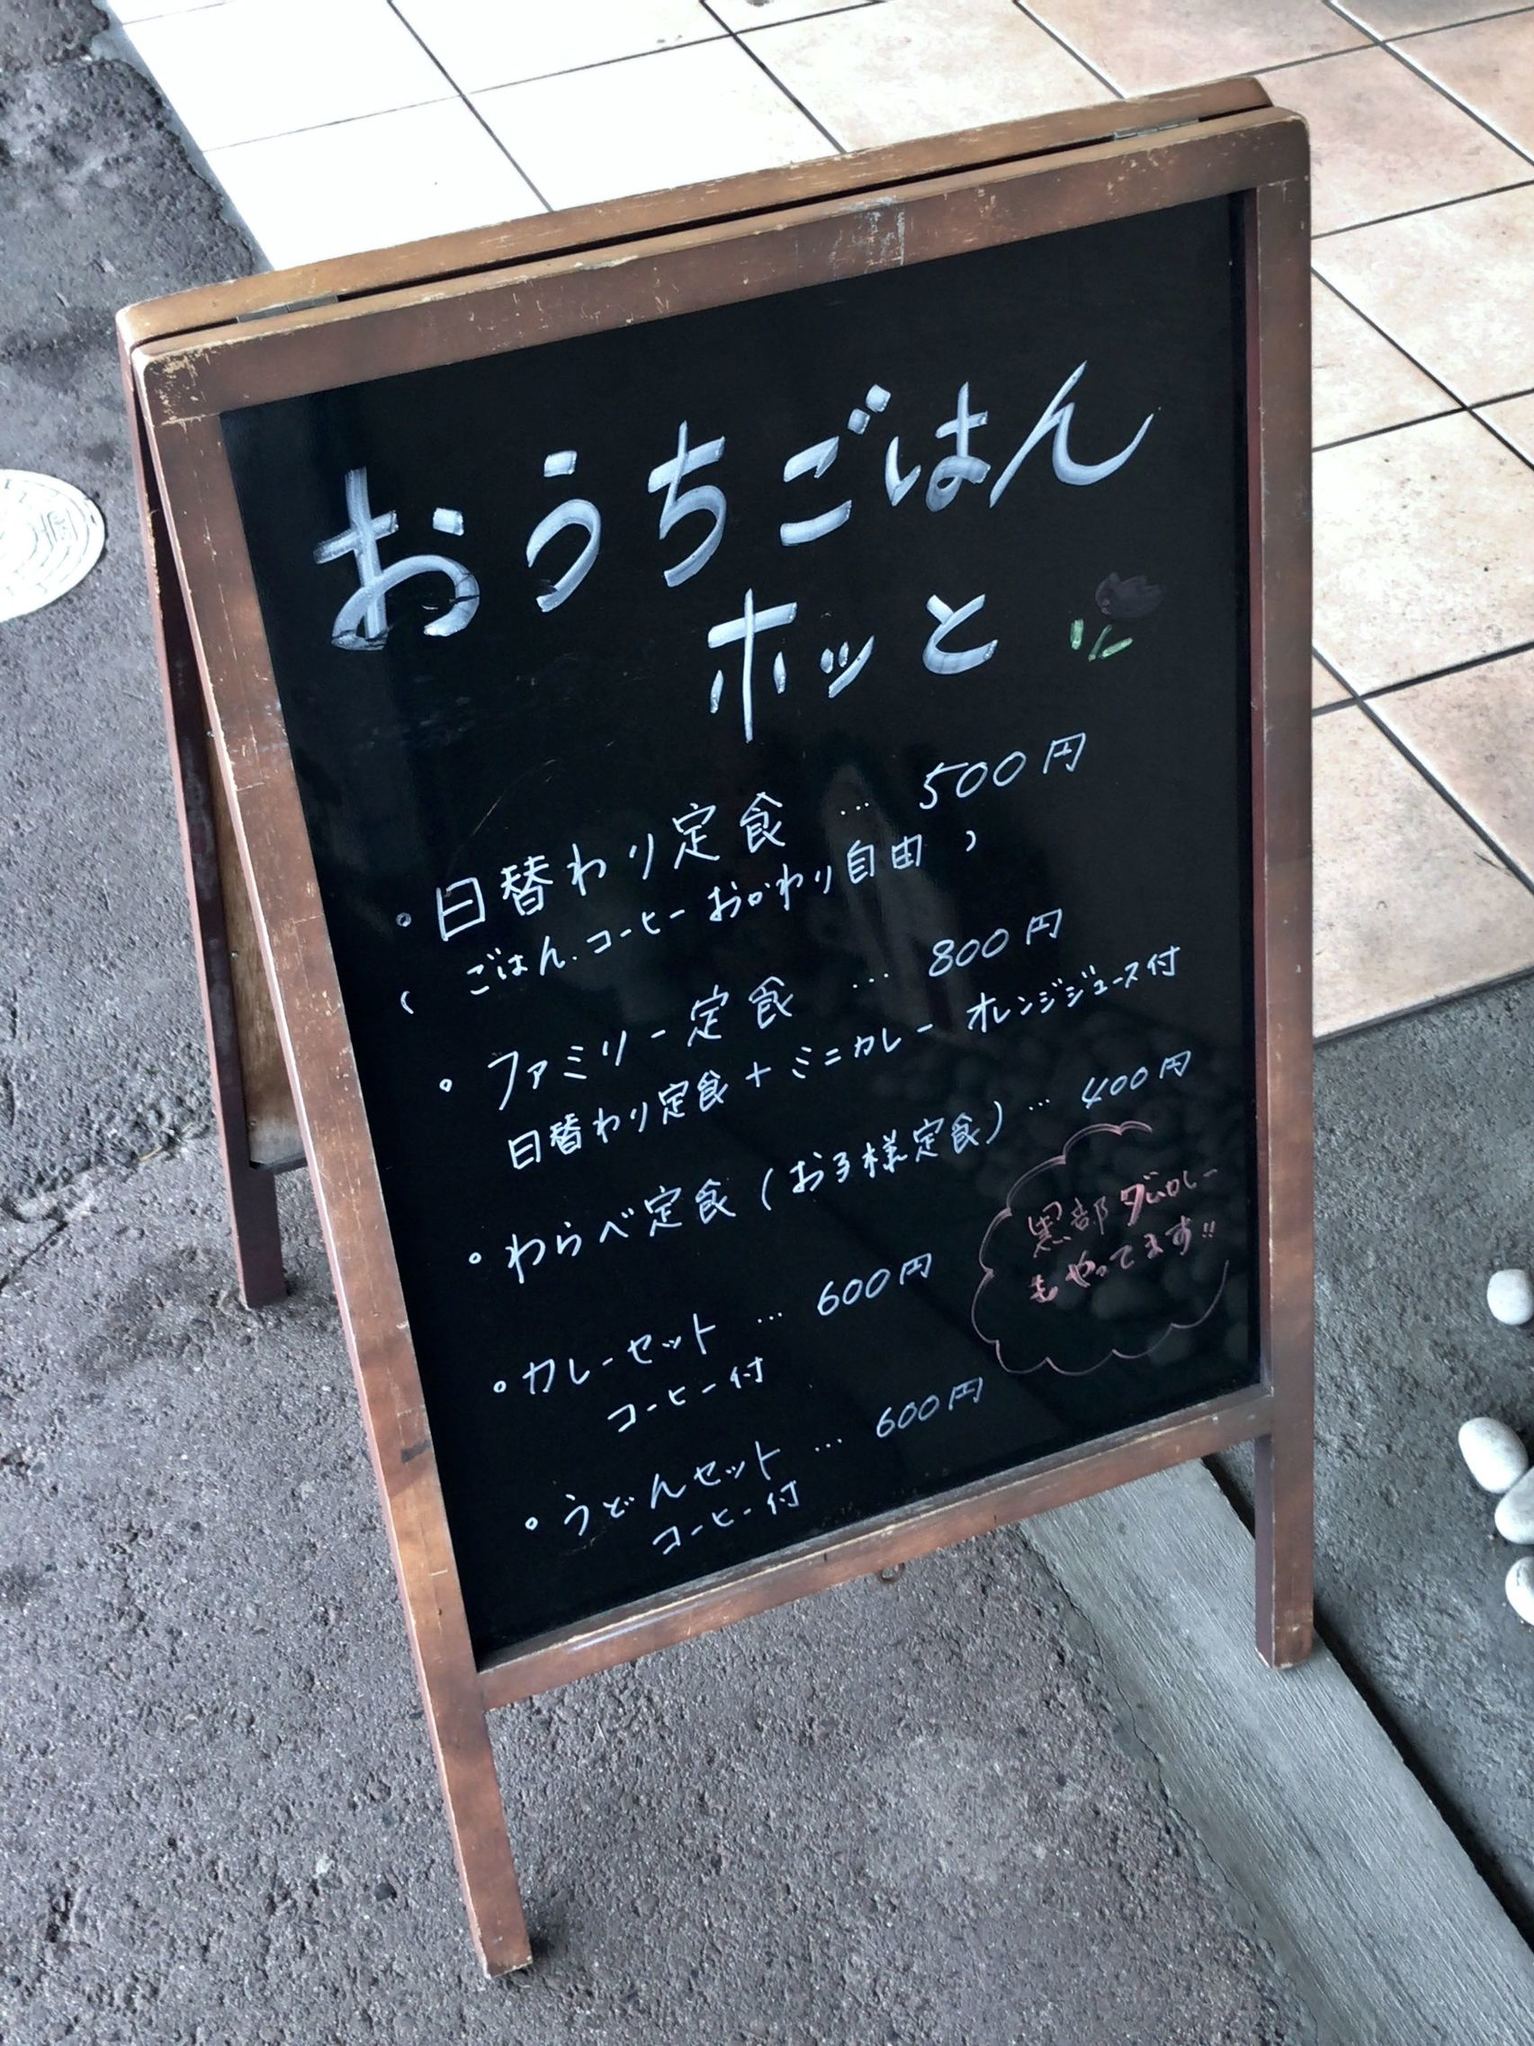 おうちごはん
ホッと
・日替わり定食 … 500円
( ごはん.コーヒー おかわり自由 )
・ファミリー定食 … 800円
日替わり定食+ミニカレー オレンジジュース付
・わらべ定食(お子様定食)… 400円
黒部ダムカレー
もやってます!!
・カレーセット … 600円
コーヒー付
・うどんセット … 600円
コーヒー付